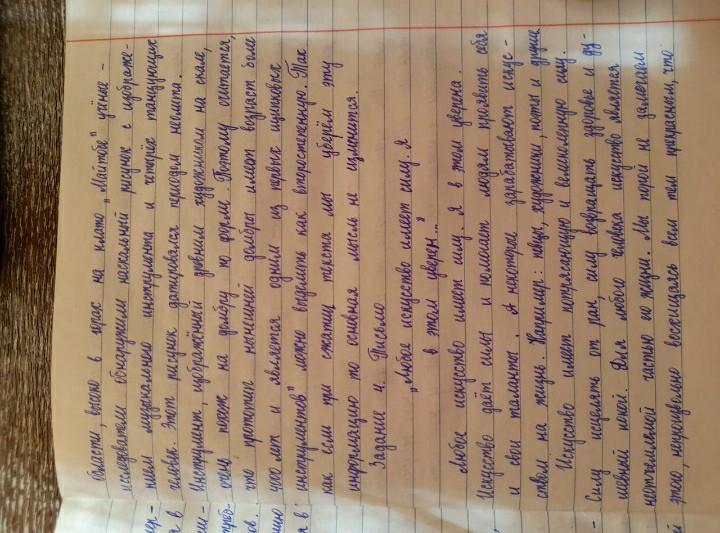 области, высоко в горах на плато „Майтобе" учёные -
исследователи обнаружили наскальный рисунок с изображе-
нием музыкального инструмента и четырёх танцующих
людей. Этот рисунок датировался периодом неолита.
Инструмент, изображённый древним художником на скале,
очень похож на домбру по форме. Поэтому считается,
что прототип нынешней домбры имеет возраст более
4000 лет и является одним из первых щипковых
инструментов" можно выделить как второстепенную. Так
как если при сжатии текста мы уберём эту
информацию то основная мысль не изменится.
Задание 4. Письмо
„Любое искусство имеет силу. Я
в этом уверен..."
Любое искусство имеет силу. Я в этом уверена.
Искусство даёт силы и помогает людям проявить себя
и свои таланты. А некоторые зарабатывают искус-
ством на жизнь. Например: певцы, художники, поэты и другие
Искусство имеет потрясающую и великолепную силу.
Силу исцелять от ран, силу возвращать здоровье и ду-
шевный покой. Для любого человека искусство является
неотъемлемой частью его жизни. Мы порой не замечаем
этого, неоценённо восхищаясь всем тем прекрасным, что